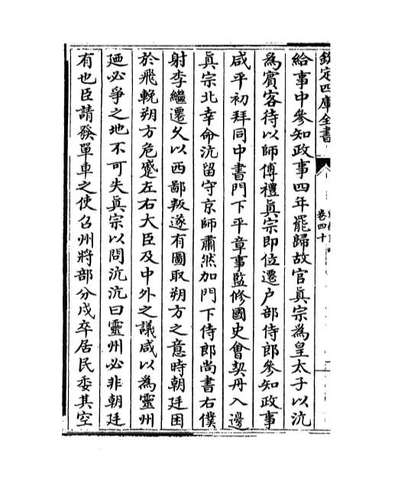 欽定四庫全書
卷四十
給事中參知政事四年罷歸故官真宗為皇太子以沆
為賓客待以師傅禮真宗即位遷户部侍郎參知政事
咸平初拜同中書門下平章事監修國史會契丹入邊
真宗北幸命沆留守京師肅然加門下侍郎尚書右僕
射李繼遷久以西鄙叛遂有圖取朔方之意時朝廷困
於飛輓朔方危蹙左右大臣及中外之議咸以為靈州
廼必爭之地不可失真宗以問沆沆曰靈州必非朝廷
有也臣請發單車之使召州將部分戍卒居民委其空